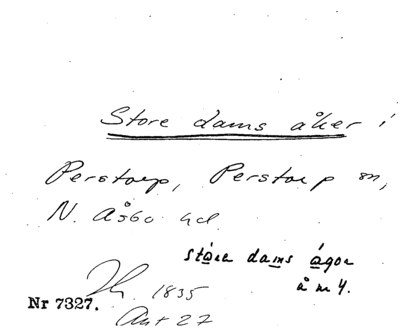 Store dams åker i
Perstorp, Perstorp sn,
N. Åsbo hd
stóra dams ágoɐ
å m 4.
1835
Nr 7327.
Avt 27